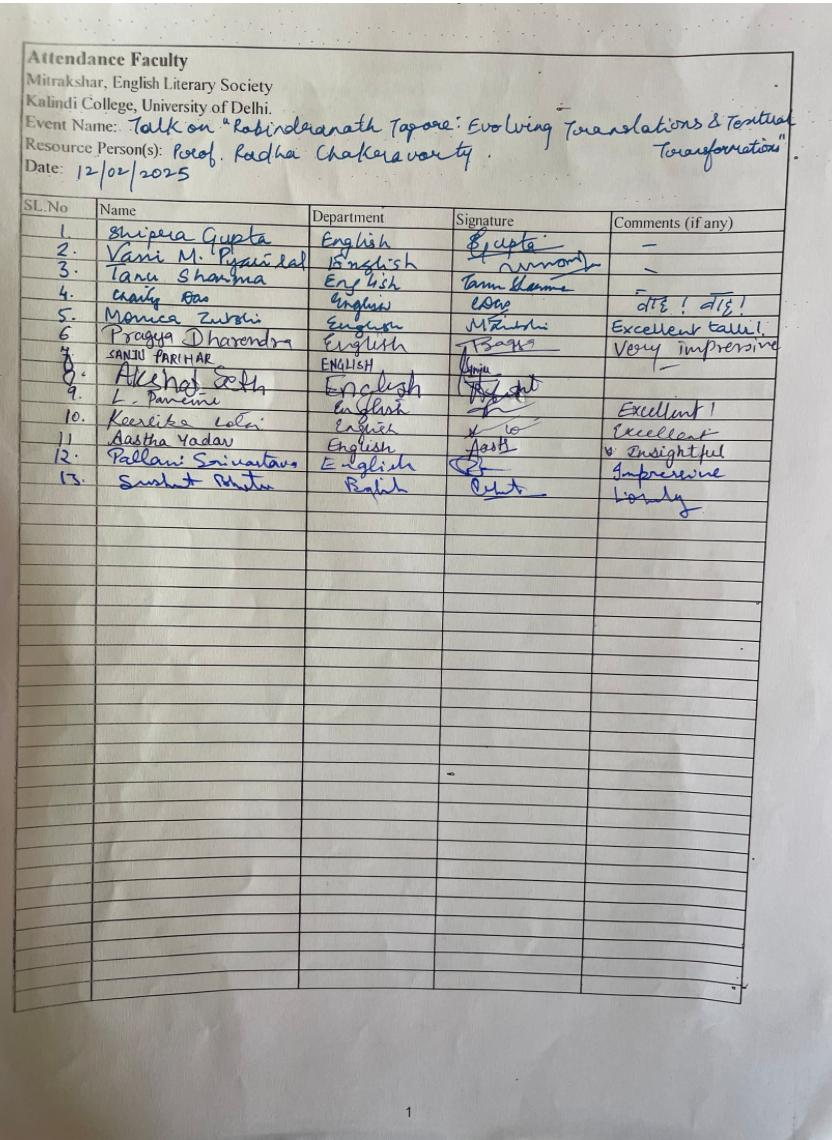 Attendance Faculty
Mitrakshar, English Literary Society
Kalindi College, University of Delhi.
Event Name: Talk on "Rabindranath Tagore: Evolving Translations & Textual
Transformation"
Resource Person(s): Prof. Radha Chakravarty.
Date: 12/02/2025
SL.No Name Department Signature Comments (if any)
1. Shipra Gupta English SGupta –
2. Vani M. English
3. Tanu Sharma English Tanu Sharma –
4. Charity Das English वाह! वाह!
5. Monica Zutshi English MZutshi Excellent talk!
6 Pragya Dharendra English Very impressive
7 SANJU PARIHAR ENGLISH Sanju –
8. Akshaj Seth English
9. L. English Excellent!
10. English Excellent
11 Aastha Yadav English Aasth Insightful
12. Pallavi Srivastava English Impressive
13. English Lovely
1